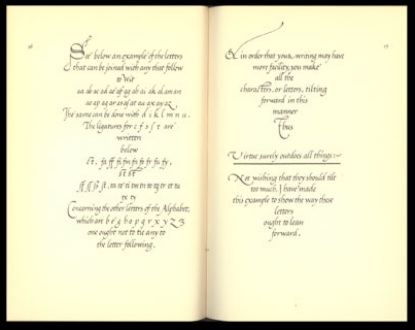 See below an example of the letters
that can be joined with any that follow
to Wit
aa ab ac ad ae af ag ah ai ak al am an
ao ap aq ar as af at au ax ay az
The same can be done with d i k l m n u.
The ligatures for c f s ſ t are
written
below
ct, fa ff fi fm fn fo fr fu fy,
st ſt
ſſ ſſ ſt, ta te ti tm tn to tq tr tt tu
tx ty
Concerning the other letters of the Alphabet,
which are b e g h o p q r x y z
one ought not to tie any to
the letter following.
& in order that your writing may have
more facility you make
all the
characters, or letters, tilting
forward in this
manner
Thus
Virtue surely outdoes all things:~
Not wishing that they should tilt
too much, I have made
this example to show the way these
letters
ought to lean
forward.